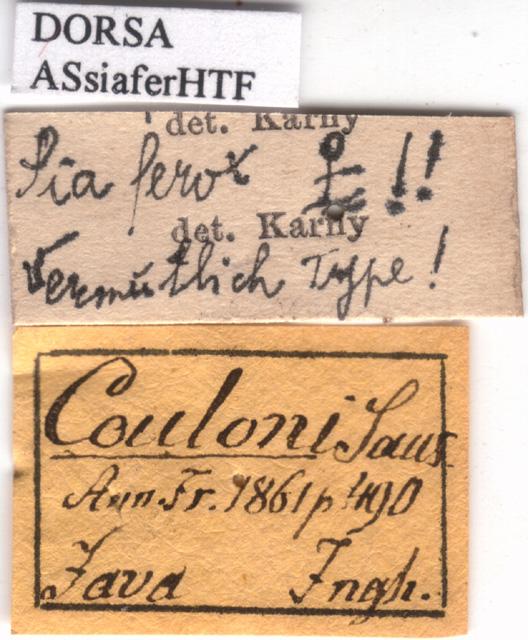 DORSA
ASsiaferHTF
det. Karny
Sia ferox ♀ !!
det. Karny
Vermutlich Type!
Couloni Sauss
Ann. Fr. 1861 p 490
Java Jngh.